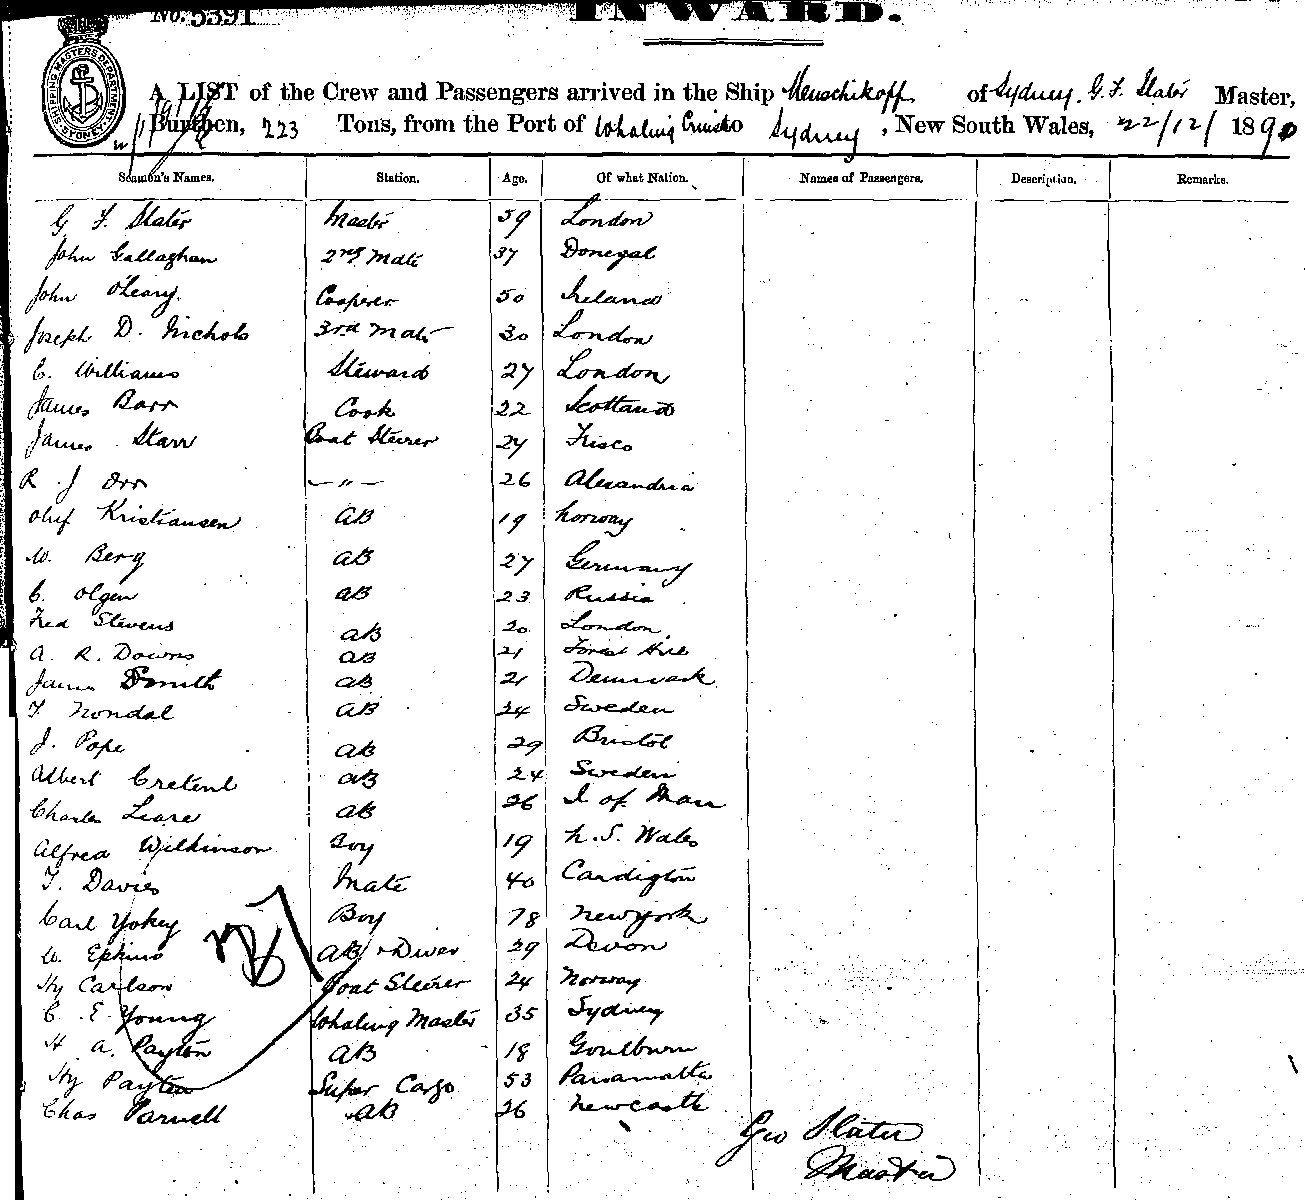 No. 5391
INWARD.
SHIPPING MASTERS DEPARTMENT SYDNEY
A LIST of the Crew and Passengers arrived in the Ship Menschikoff of Sydney, G. F. Slater Master,
Burthen, 223 Tons, from the Port of Whaling Cruise to Sydney, New South Wales, 22/12/1890
Seamen's Names. Station. Age. Of what Nation. Names of Passengers. Description. Remarks.
G F. Slater Master 59 London
John Gallaghan 2nd Mate 37 Donegal
John O'Leary Cooperer 50 Ireland
Joseph D. Nichols 3rd Mate 30 London
C. Williams Steward 27 London
James Barr Cook 22 Scotland
James Starr Boat Steerer 27 Frisco
R. J Orr — " — 26 Alexandria
Oluf Kristiansen AB 19 Norway
W. Berg AB 27 Germany
C. Olgen AB 23 Russia
Fred Stevens AB 20 London
A. R. Downs AB 21 Forest Hill
James Smith AB 21 Denmark
F. Nondal AB 24 Sweden
J. Pope AB 29 Bristol
Albert Cretent AB 24 Sweden
Charles Leare AB 26 I of Man
Alfred Wilkinson Boy 19 N. S. Wales
F. Davies Mate 40 Cardigton
Carl Yokey Boy 18 New York
W. Ephins AB + Diver 29 Devon
Hy Carlson Boat Steerer 24 Norway
C. E. Young Whaling Master 35 Sydney
H A. Payton AB 18 Goulburn
Hy Payton Super Cargo 53 Paramatta
Chas Parnell AB 26 Newcastle
Geo Slater
Master